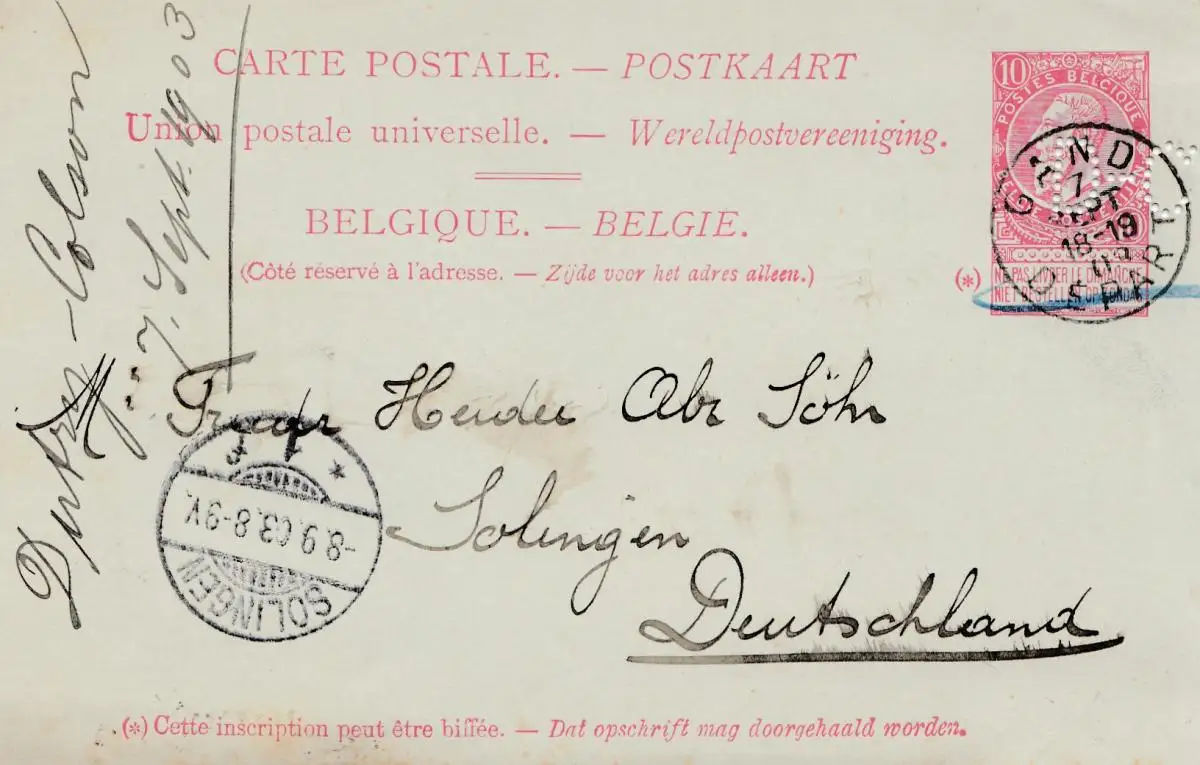 CARTE POSTALE. — POSTKAART
Union postale universelle. — Wereldpostvereeniging.
BELGIQUE. — BELGIE.
(Côté réservé à l'adresse. — Zijde voor het adres alleen.)
10
POSTES BELGIQUE
(*)
NE PAS LIVRER LE DIMANCHE
NIET BESTELLEN OP ZONDAG
GAND
7
SEPT
18-19
DÉPART
-Colson
7. Sept. 1903
Friedr Herder Abr Söhn
Solingen
Deutschland
SOLINGEN
-8.9.03.8-9V.
* 1 f
(*) Cette inscription peut être biffée. — Dat opschrift mag doorgehaald worden.